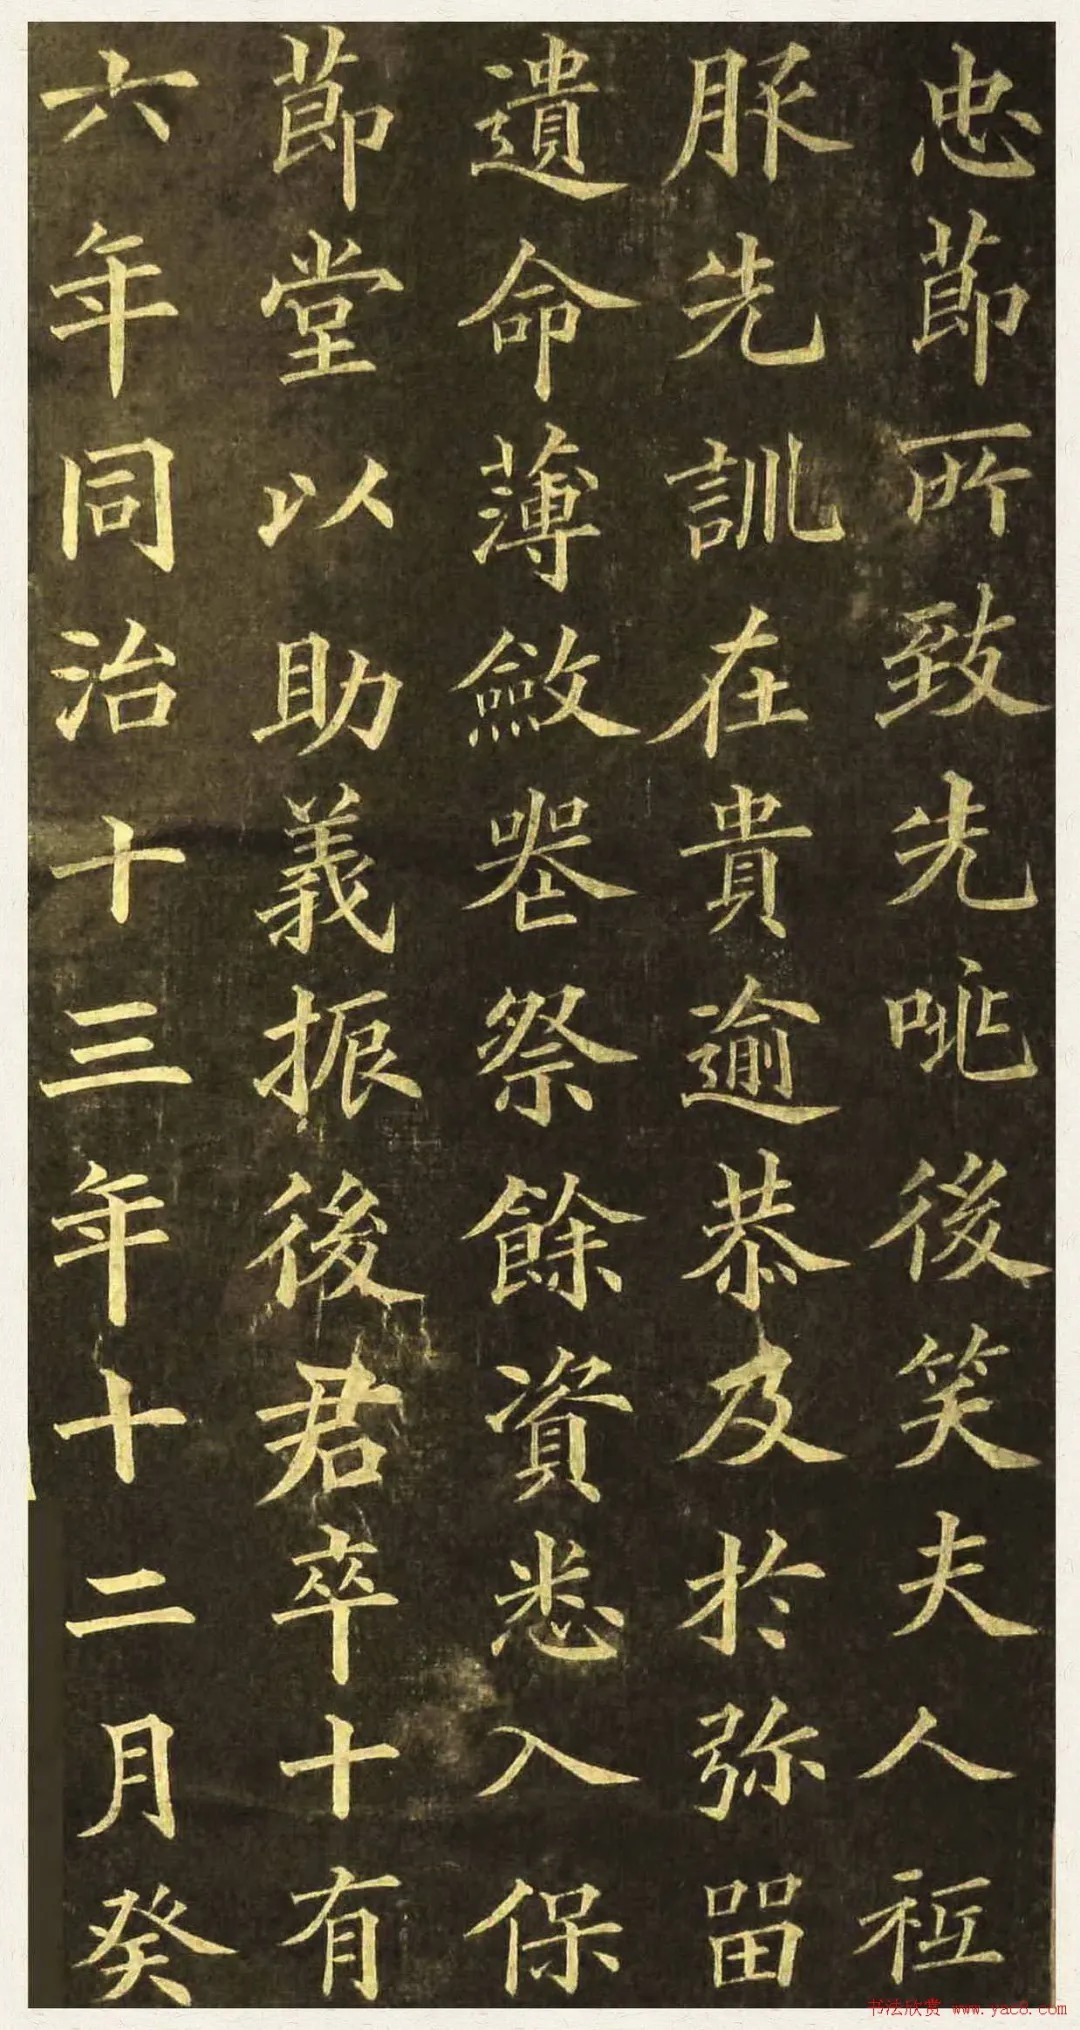 忠莭所致先咷後笑夫人祗
服先訓在貴逾恭及於弥畱
遺命薄斂喪祭餘資悉入保
莭堂以助義振後君卒十有
六年同治十三年十二月癸
书法欣赏 www.yac8.com